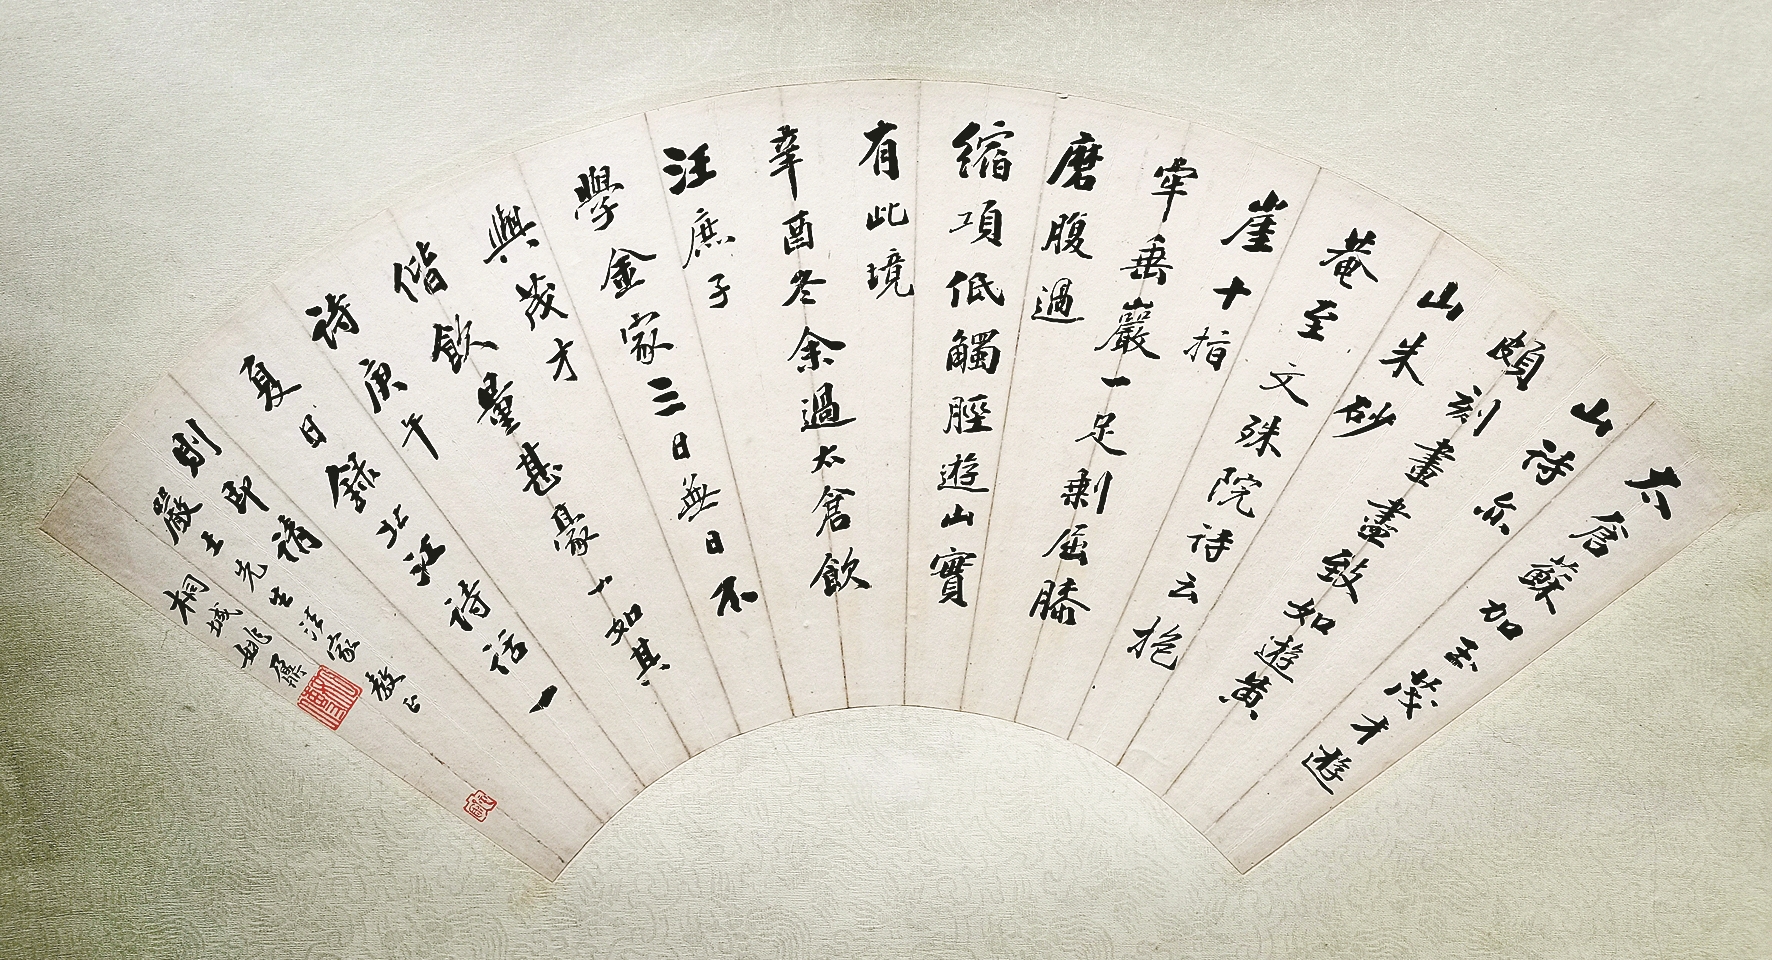 太倉蘇加玉茂才遊
山詩亦
頗刻畫盡致如遊黃
山朱砂
菴至文殊院詩云抱
崖十指
牢垂巖一足剩屈膝
磨腹過
縮項低觸脛遊山實
有此境
辛酉冬余過太倉飲
汪庶子
學金家三日無日不
與茂才
偕飲量甚豪一如其
詩庚午
夏日錄北江詩話一
則即請
嚴士先生法家教正
桐城姚鼐